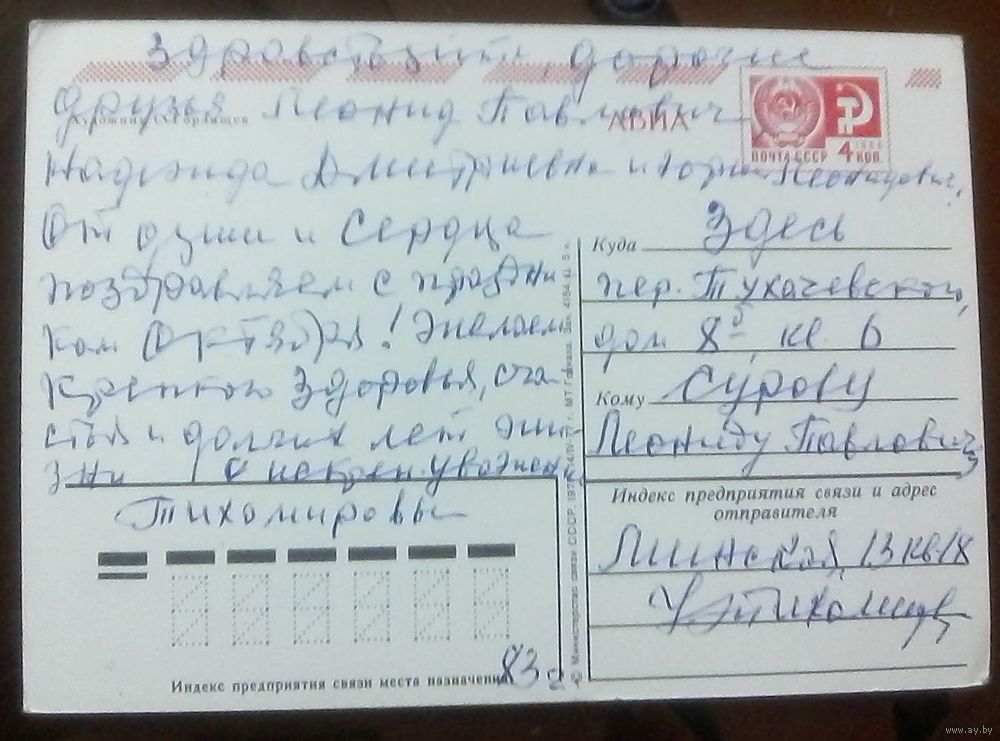 Здравствуйте, дорогие
друзья Леонид Павлович,
Надежда Дмитриевна и Юрий Леонидович.
От души и сердца
поздравляем с праздни
ком Октября! Желаем
крепкого здоровья, сча
стья и долгих лет жи
зни С искрен. уважен.
Тихомировы
АВИА
ПОЧТА СССР 4 КОП.
Куда Здесь
пер. Тухачевского,
дом 8, кв. 6
Кому Сурову
Леониду Павловичу
Индекс предприятия связи и адрес
отправителя
Минская, 13 кв 18
Тихомиров
© Министерство связи СССР.
Индекс предприятия связи места назначения
83 г
www.ay.by